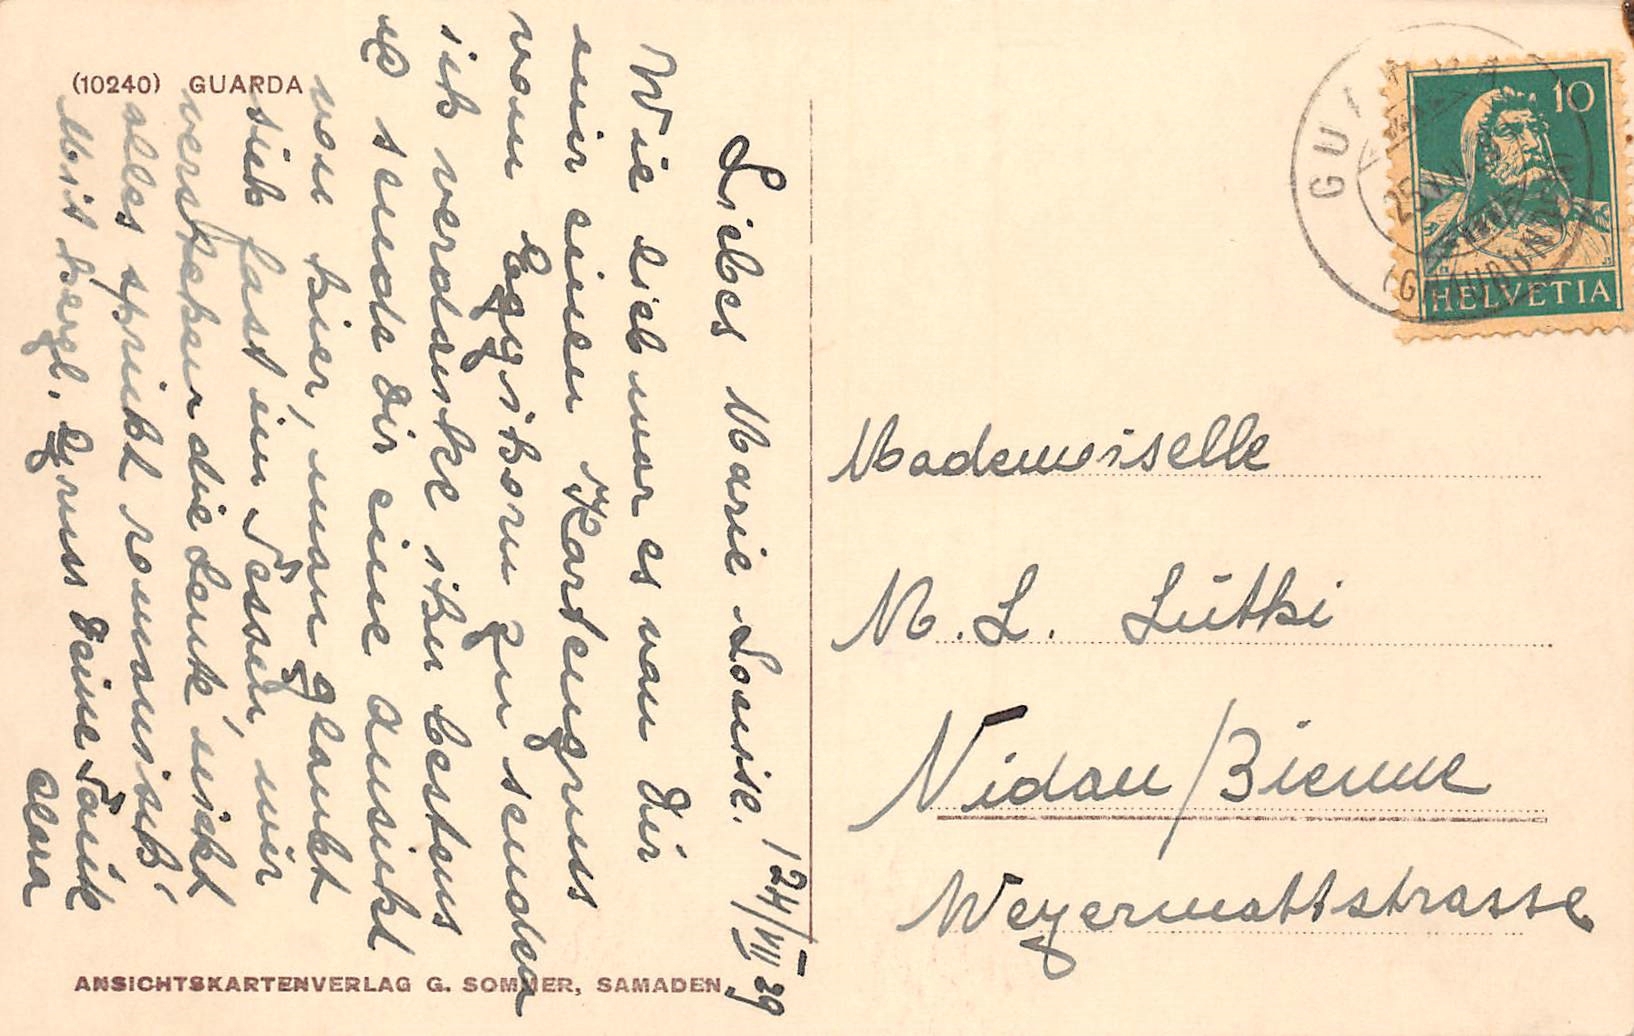 (10240) GUARDA
24/VII 29
Liebes Marie Louise.
Wie lieb war es von Dir
mir einen Kartengruss
vom Eggishorn zu senden
ich verdanke ihn bestens
& sende Dir eine Ansicht
von hier, man glaubt
sich fast im Tessin, wir
verstehen die Leute nicht
alles spricht romanisch.
Mit herzl. Gruss Deine Tante
Clara
ANSICHTSKARTENVERLAG G. SOMMER, SAMADEN.
10
HELVETIA
GUARDA
Mademoiselle
M. L. Lüthi
Nidau/Bienne
Weyermattstrasse